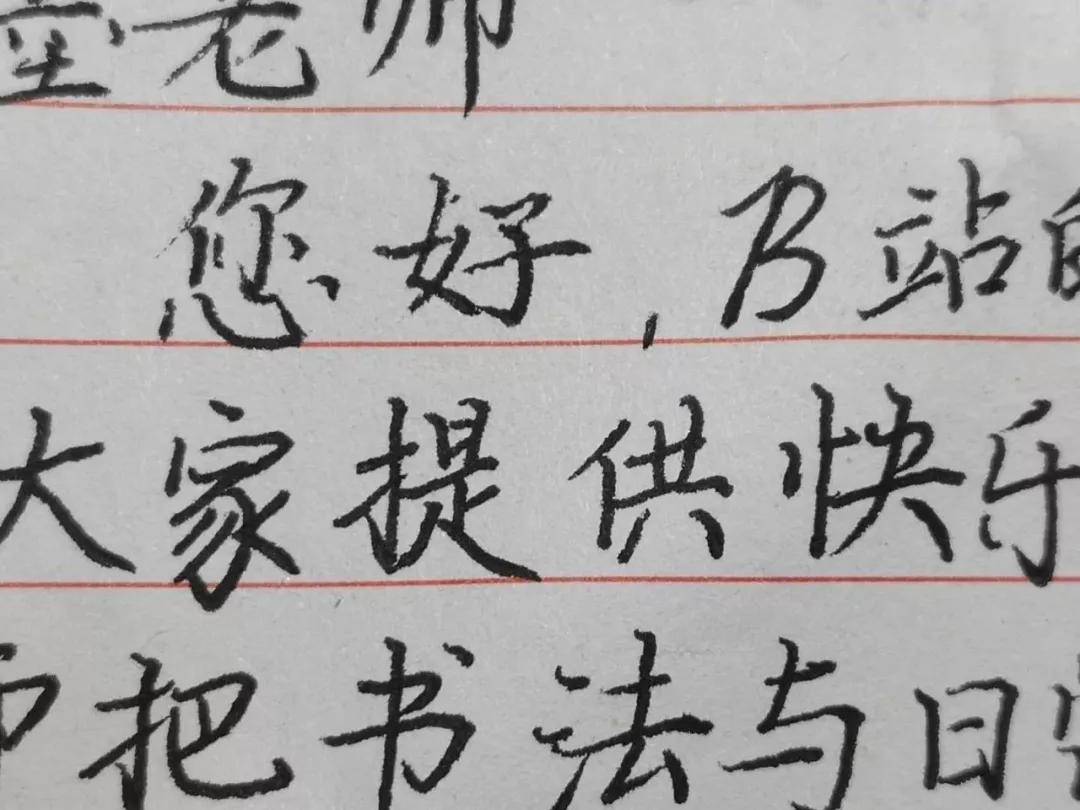 老师
您好,B站的
大家提供快乐
师把书法与日常